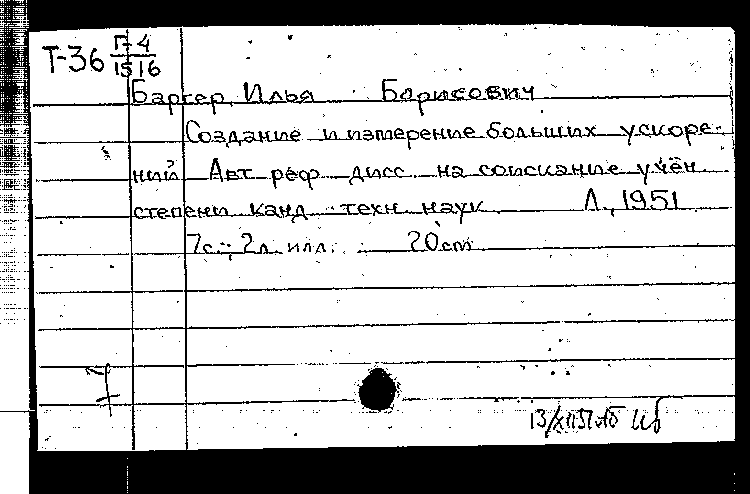 Т-36 Г-4
15 16
Баргер, Илья Борисович
Создание и измерение больших ускоре-
ний Авт реф дисс на соискание учён
степени канд техн наук Л., 1951
7с.; 2л. илл. 20cm